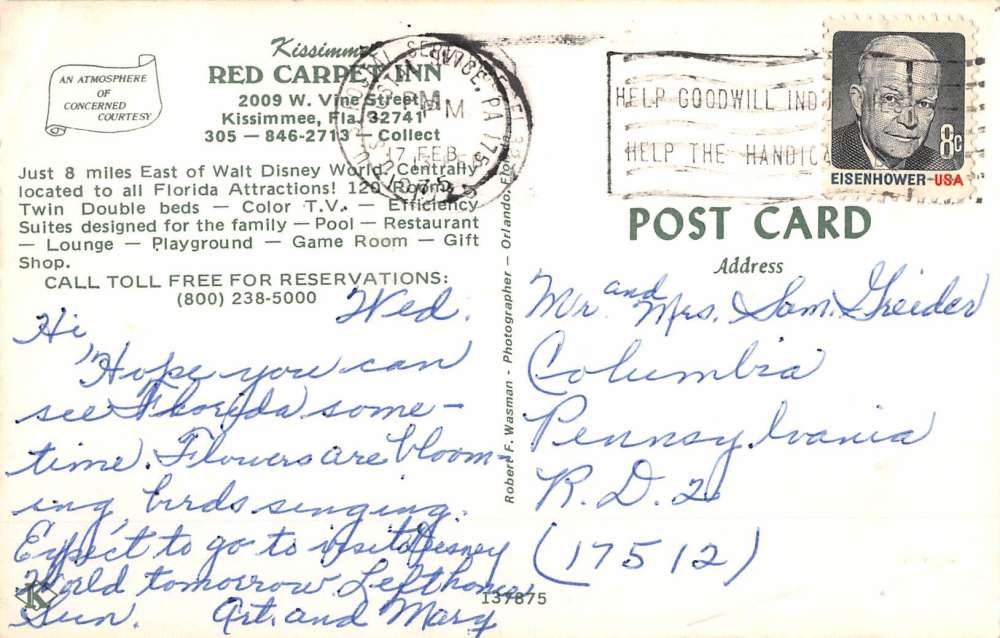 AN ATMOSPHERE
OF
CONCERNED
COURTESY
Kissimmee
RED CARPET INN
2009 W. Vine Street
Kissimmee, Fla. 32741
305 — 846-2713 — Collect
Just 8 miles East of Walt Disney World. Centrally
located to all Florida Attractions! 120 Rooms —
Twin Double beds — Color T.V. — Efficiency
Suites designed for the family — Pool — Restaurant
— Lounge — Playground — Game Room — Gift
Shop.
CALL TOLL FREE FOR RESERVATIONS:
(800) 238-5000
Wed.
Hi
Hope you can
see Florida some-
time. Flowers are bloom-
ing birds singing.
Expect to go to visit Disney
World tomorrow Left home
Sun. Art. and Mary
K
Robert F. Wasman - Photographer - Orlando, Florida
137875
U.S. POSTAL SERVICE, PA 175
PM
17 FEB
1975
HELP GOODWILL
HELP THE
EISENHOWER-USA
8c
POST CARD
Address
Mr. and Mrs. Sam. Greider
Columbia
Pennsylvania
R. D. 2
(17512)